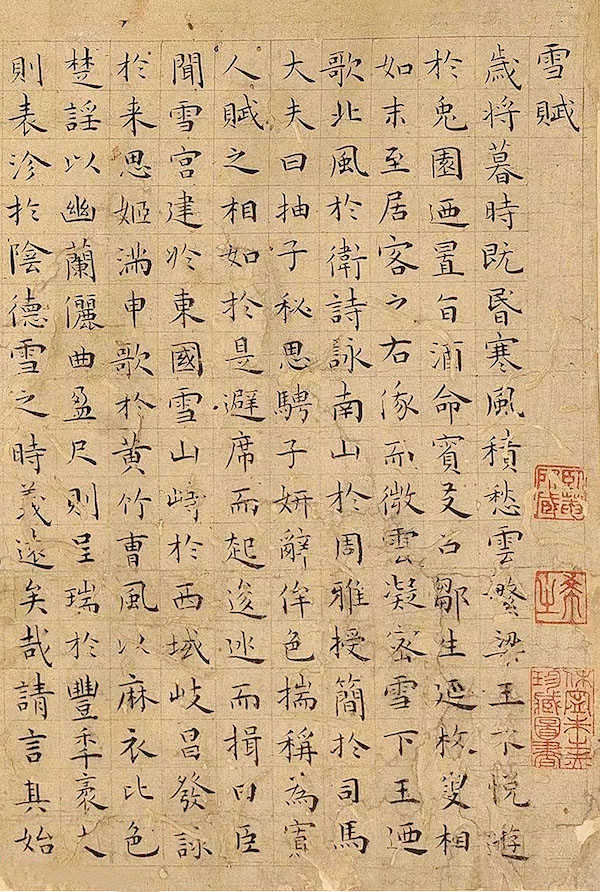 雪賦
歲將暮時既昏寒風積愁雲繁梁王不悅遊
於兔園迺置旨酒命賓友召鄒生延枚叟相
如末至居客之右俄而微雲凝密雪下王迺
歌北風於衛詩詠南山於周雅授簡於司馬
大夫曰抽子秘思騁子妍辭侔色揣稱為寡
人賦之相如於是避席而起逡巡而揖曰臣
聞雪宮建於東國雪山峙於西域岐昌發詠
於来思姬滿申歌於黃竹曹風以麻衣比色
楚謠以幽蘭儷曲盈尺則呈瑞於豐年袤丈
則表沴於陰德雪之時義遠矣哉請言其始
臥菴所藏
休寧朱之赤珍藏圖書